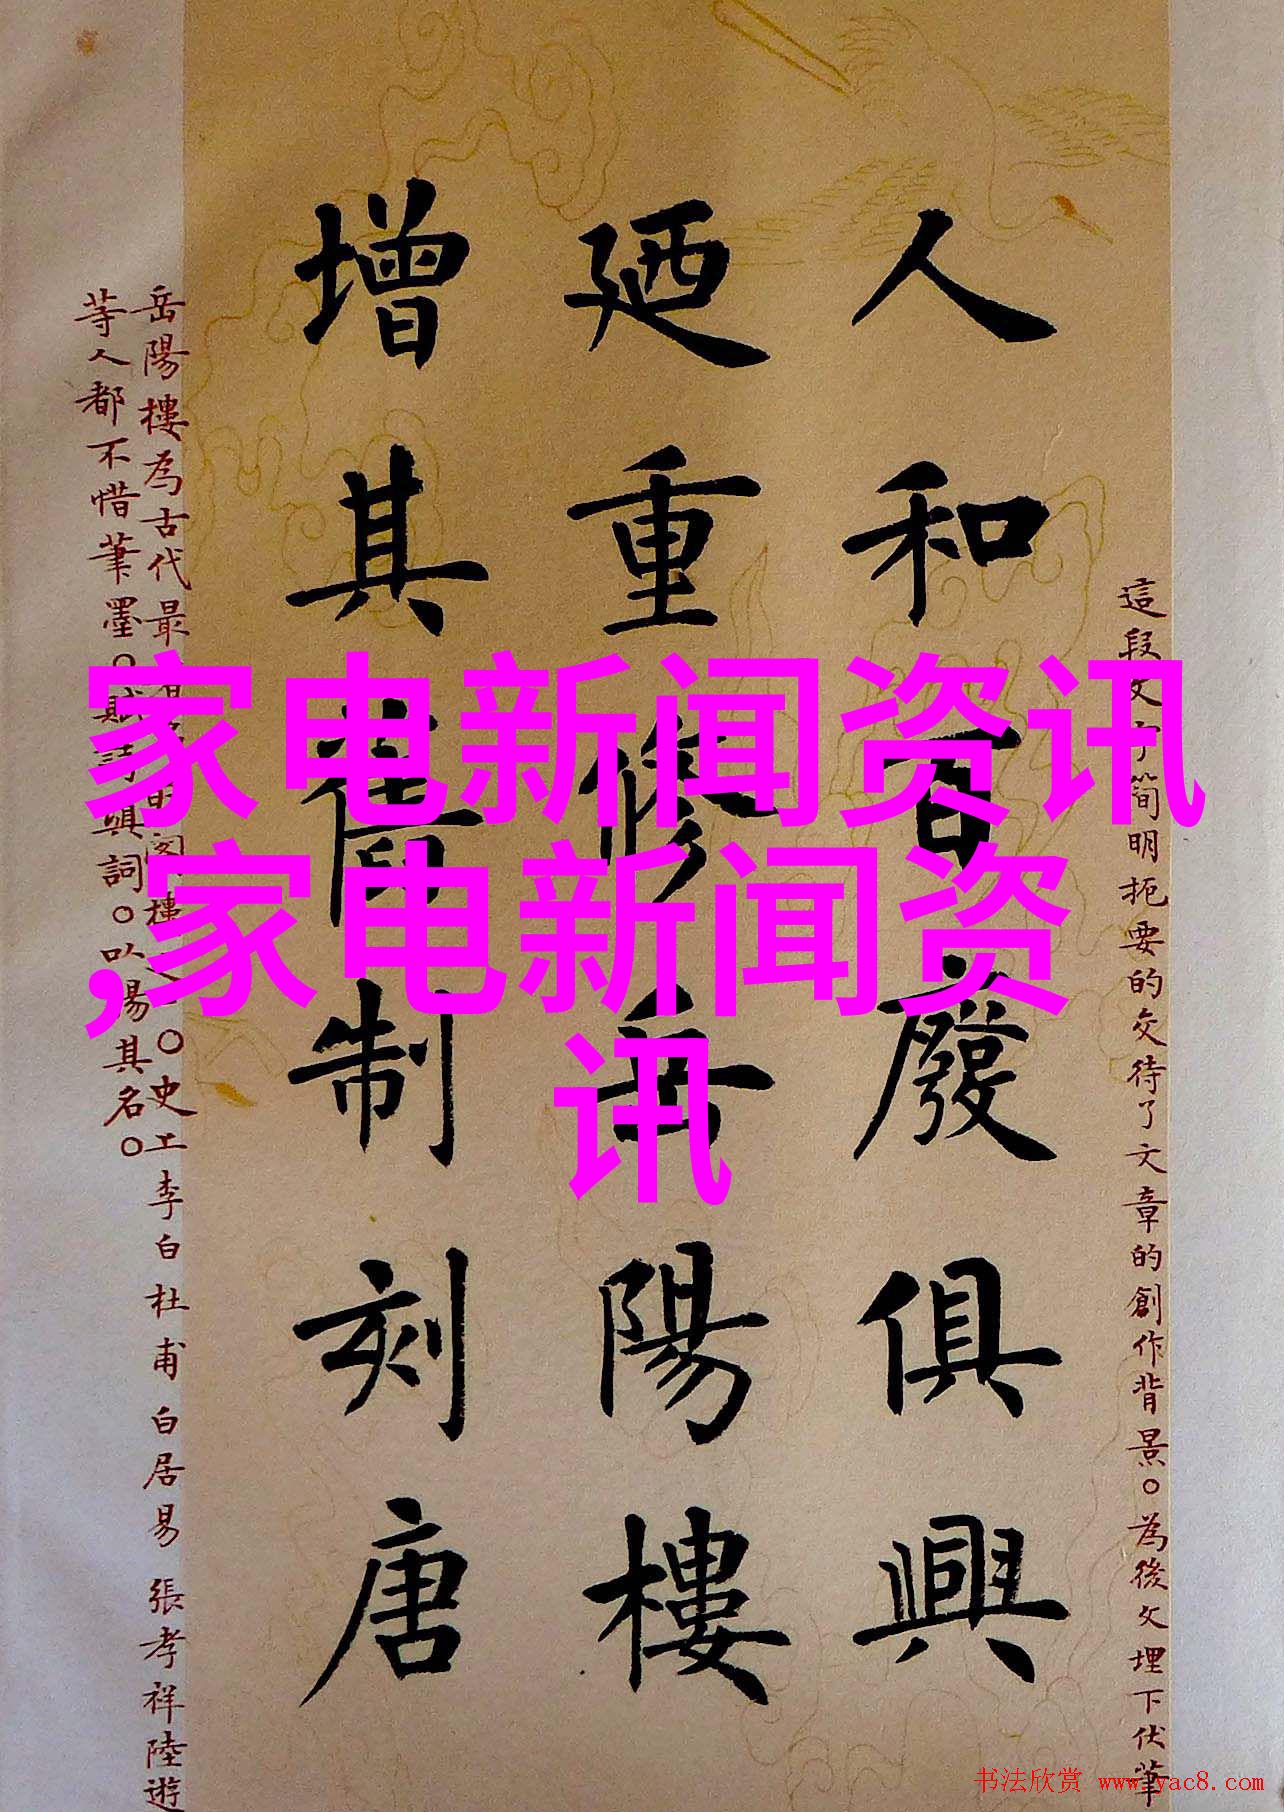 這段文字簡明扼要的交待了文章的創作背景。為後文埋下伏筆
人和百廢俱興
廼重修岳陽樓
增其舊制刻唐
岳陽樓為古代最閣樓之一。史工李白杜甫白居易張孝祥陸遊
等人都不惜筆墨。賦詩與詞。以揚其名。
家电新闻资讯
,家电新闻资
讯
书法欣赏 www.yac8.com